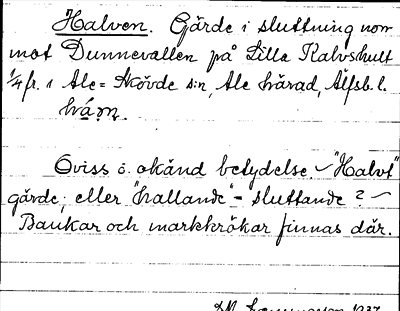 Halven. Gärde i sluttning norr
mot Dunnevallen på Lilla Kalvhult
1/4 fr. i Ale-Skövde s:n, Ale härad, Älfsb. l.
Oviss o. okänd betydelse. "Halvt"
gärde; eller "hallande" - sluttande?
Bankar och markkrökar finnas där.
1937